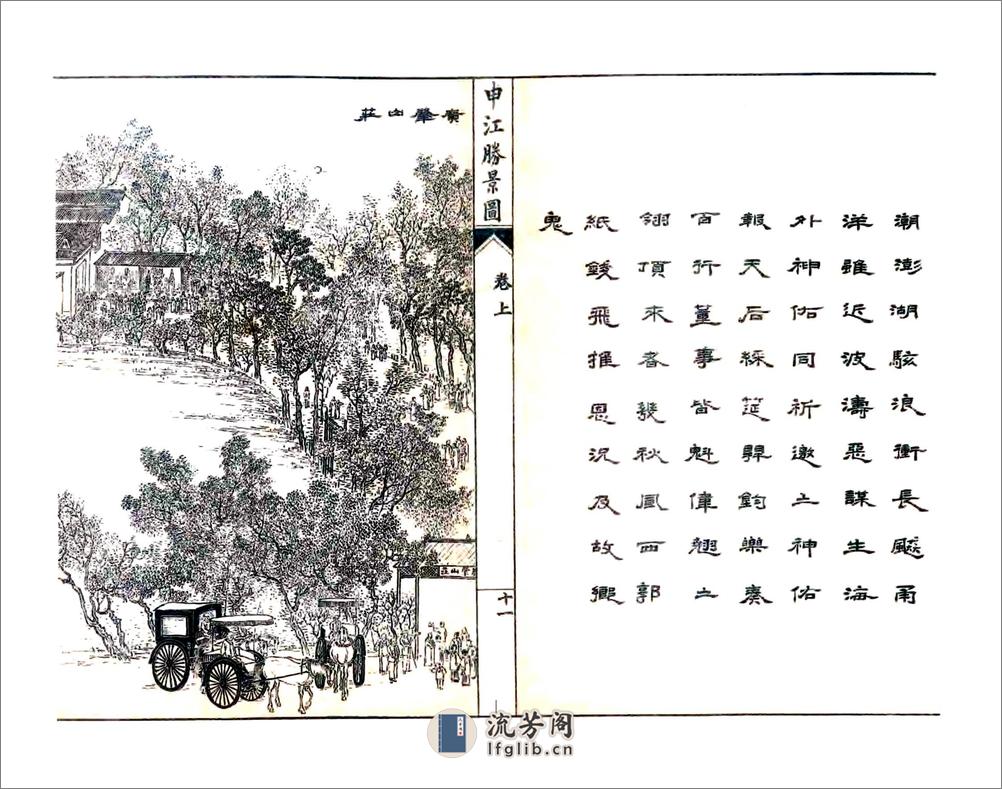 潮澎湖駭浪衝長飈甬
洋雖近波濤惡謀生海
外神估同祈邀上神佑
報天后綵筵肆鈞樂奏
百行董事皆魁偉翹々
翎頂來幾秋風西郭
紙錢飛推恩況及故鄉
鬼
申江勝景圖
卷上
十一
廣肇山莊
廣肇山莊
流芳阁
lfglib.cn